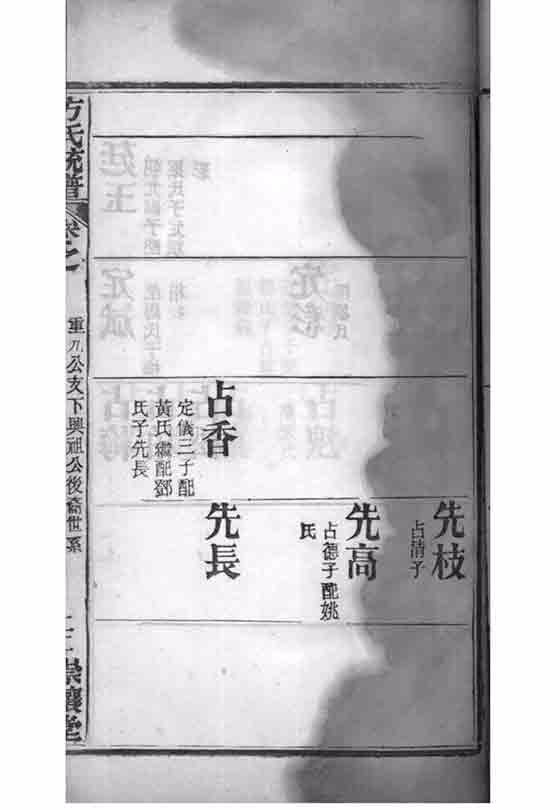 先枝
占清子
先高
占德子配姚
氏
占香
定儀三子配
黃氏繼配鄧
氏子先長
先長
方氏統譜
卷之
重九公支下興祖公後裔世系